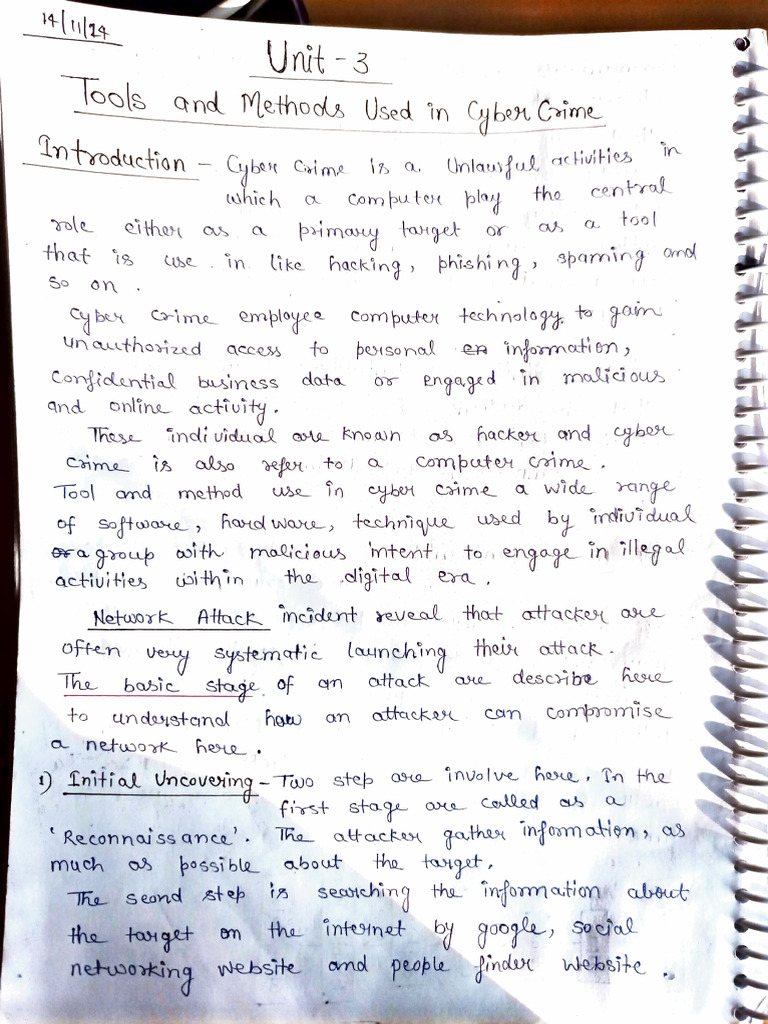 14/11/24
Unit - 3
Tools and Methods Used in Cyber Crime
Introduction - Cyber Crime is a Unlawful activities in
which a computer play the central
role either as a primary target or as a tool
that is use in like hacking, phishing, spaming and
so on.
Cyber crime employee computer technology to gain
unauthorized access to personal information,
Confidential business data or engaged in malicious
and online activity.
These individual are known as hacker and cyber
crime is also refer to a computer crime.
Tool and method use in cyber crime a wide range
of software, hardware, technique used by individual
or a group with malicious intent to engage in illegal
activities within the digital era.
Network Attack incident reveal that attacker are
often very systematic launching their attack.
The basic stage of an attack are describe here
to understand how an attacker can compromise
a network here.
1) Initial Uncovering - Two step are involve here. In the
first stage are called as a
'Reconnaissance'. The attacker gather information, as
much as possible about the target.
The seond step is searching the information about
the target on the internet by google, social
networking website and people finder website.